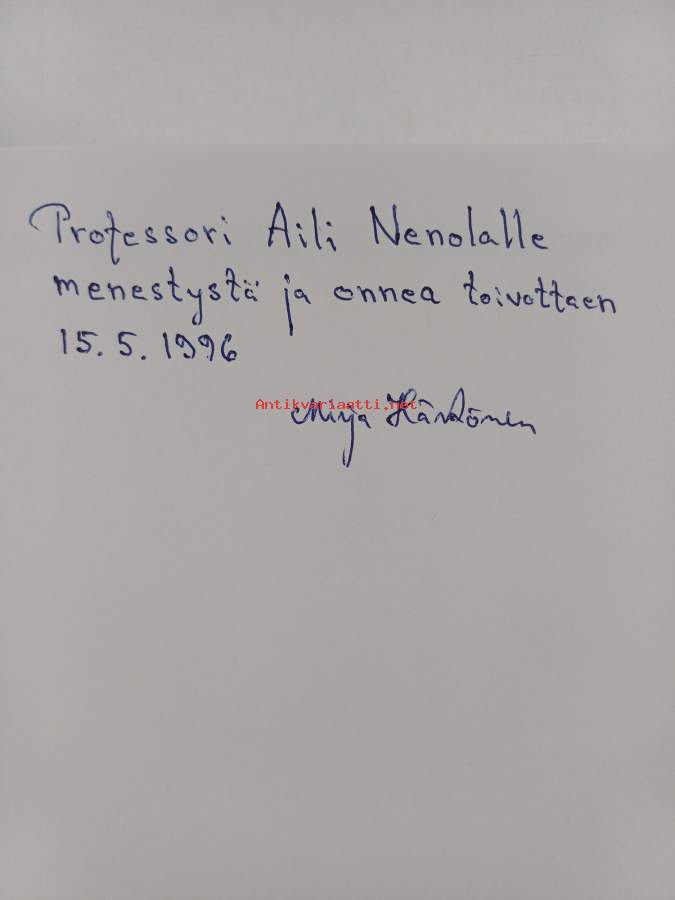 Professori Aili Nenolalle
menestystä ja onnea toivottaen
15.5.1996
Antikvariaatti.net
Mirja Härkönen